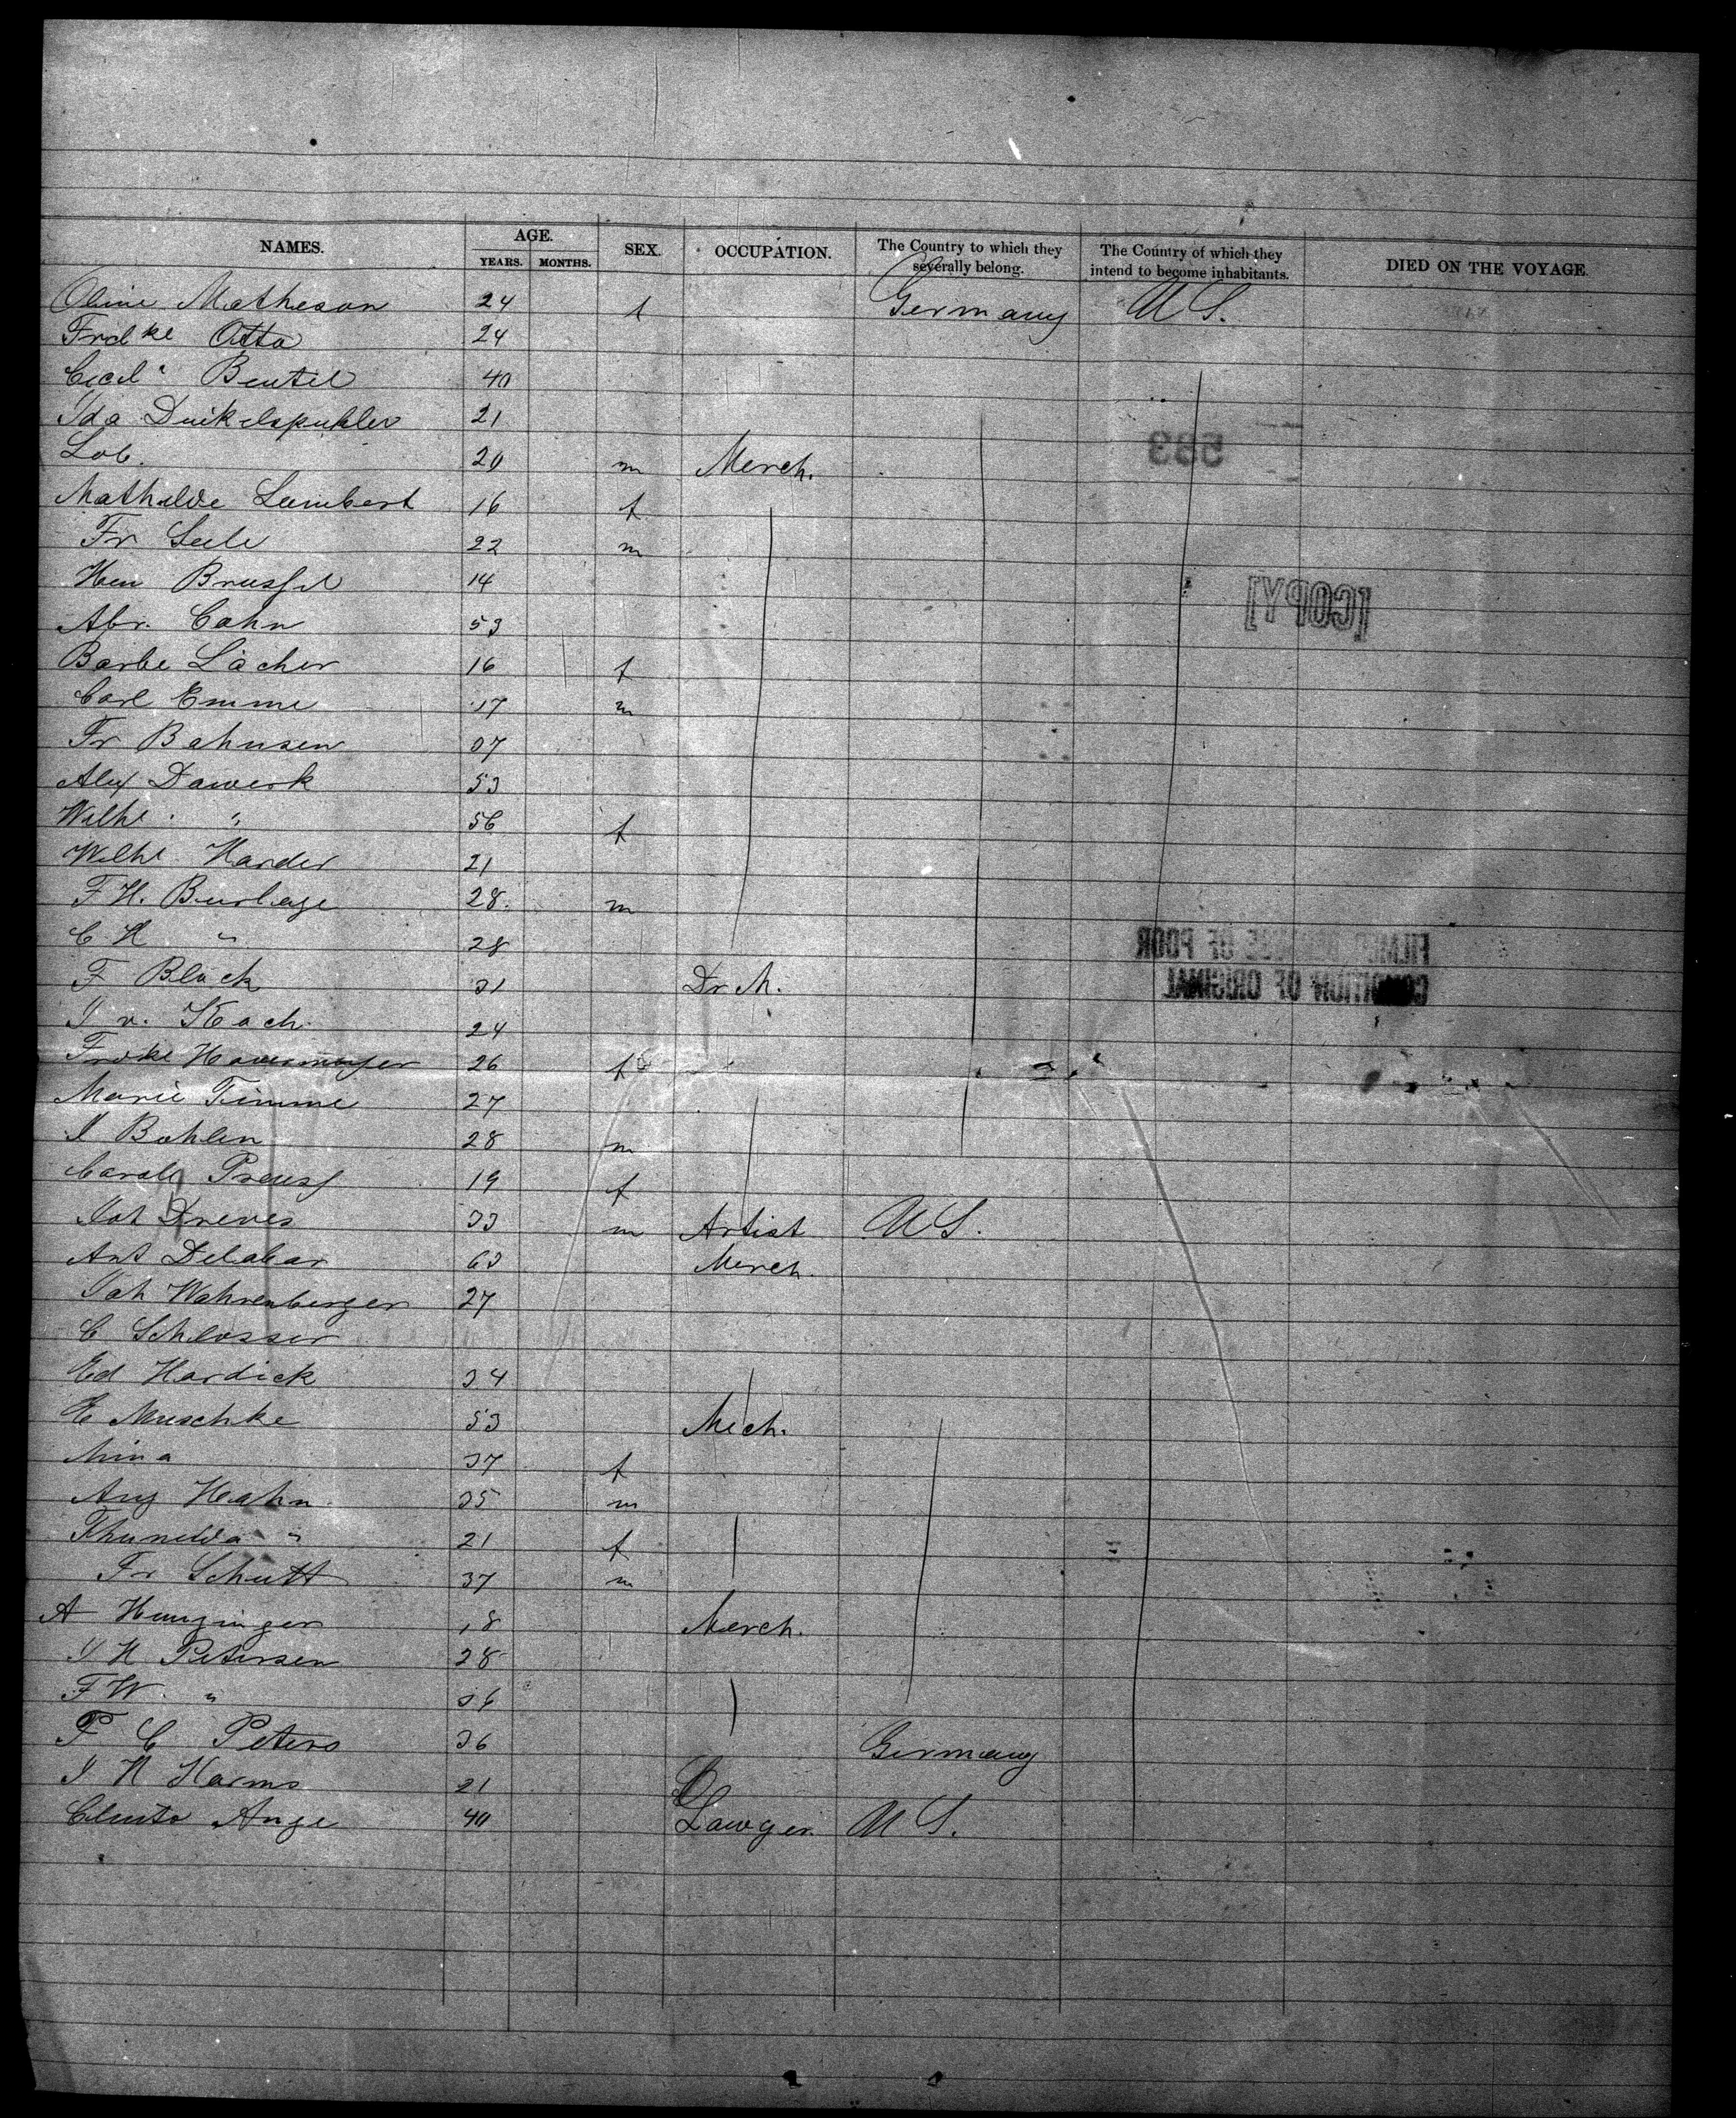 NAMES. AGE. YEARS. MONTHS. SEX. OCCUPATION. The Country to which they severally belong. The Country of which they intend to become inhabitants. DIED ON THE VOYAGE.
Oline Matheson 24 f Germany U S.
Frdke Otto 24
Cecil Beutel 40
Ida 21
Lob. 20 m Merch.
Mathilde Lambert 16 f
Fr Seele 22 m
Hen Brussel 14
Abr. Cohn 53
Barbe Lacher 16 f
Carl Emme 17 m
Fr Bahnsen 37
Alex Dawerk 53
Wilhe. " 56 f
Wilhe Harder 21
F H. Burlage 28. m
C H " 28
F Block 31 Dr. M.
I v. Koch 24
Frdke Havermeyer 26 f
Marie Timme 27
I Bohlen 28 m
Carole Preuss 19 f
Joh Dreves 33 m Artist U S.
Ant Delabar 63 Merch.
Joh Wahrenberger 27
C Schlosser
Ed Hardick 34
E Muschke 53 Mech.
Mina 37 f
Aug Hahn 35 m
Thunelda " 21 f
Fr Schutt 37 m
A Hunzinger 18 Merch.
I H Petersen 28
F W. " 36
F C Peters 36 Germany
I H Harms 21
Ange 40 Lawyer U S.
583
[COPY]
FILMED BECAUSE OF POOR
CONDITION OF ORIGINAL